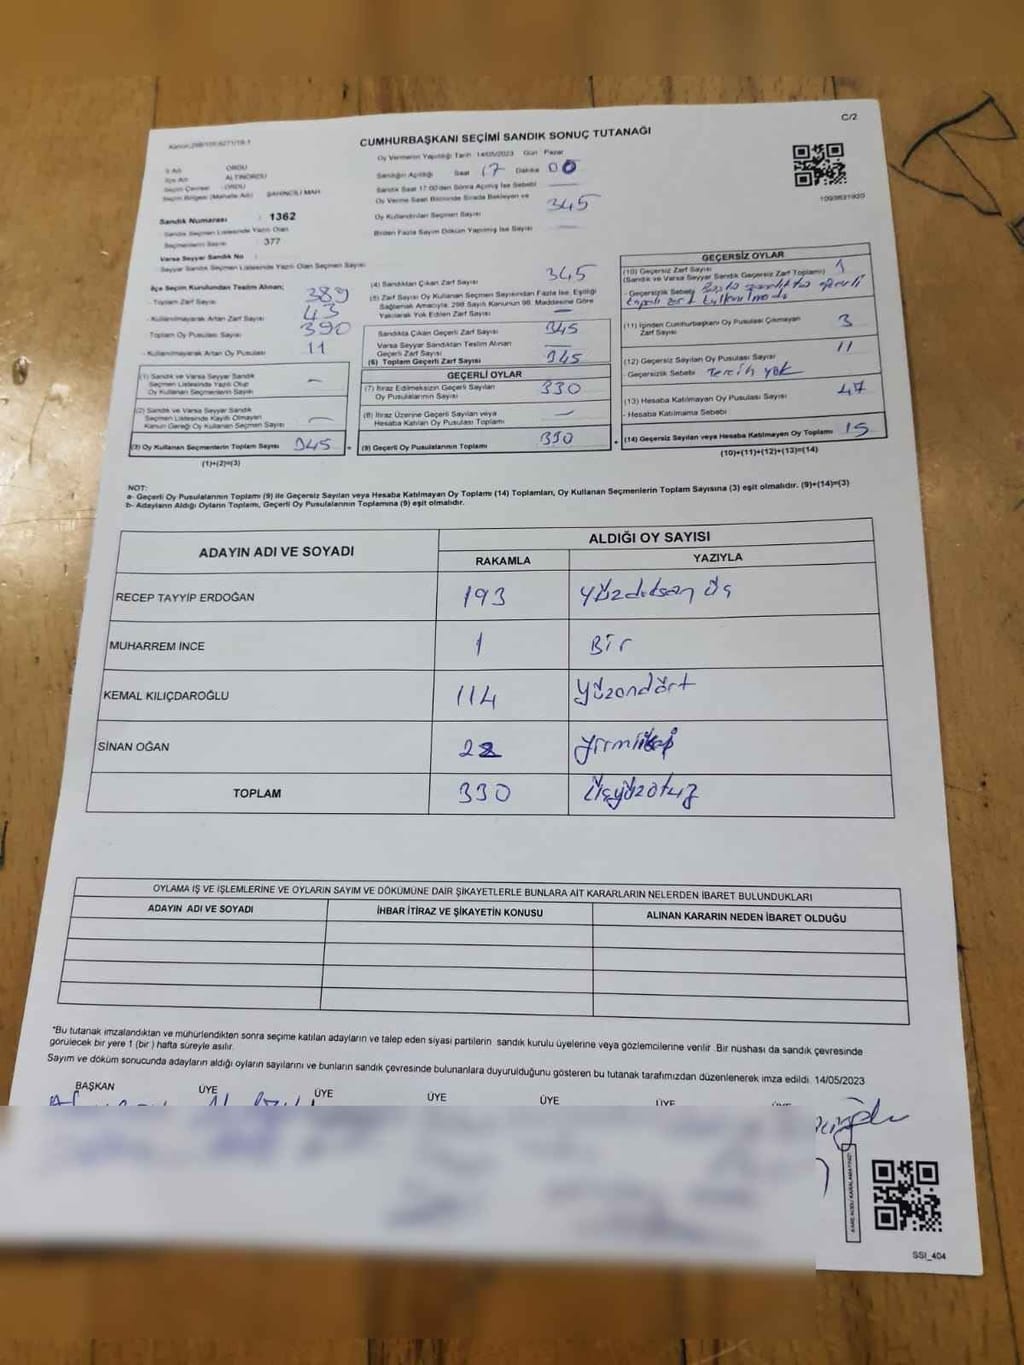 C/2
CUMHURBAŞKANI SEÇİMİ SANDIK SONUÇ TUTANAĞI
Oy Vermenin Yapıldığı Tarih 14/05/2023 Gün Pazar
İl Adı ORDU
İlçe Adı ALTINORDU
Seçim Çevresi ORDU
Seçim Bölgesi (Mahalle Adı) ŞAHİNCİLİ MAH
Sandık Numarası : 1362
Sandık Seçmen Listesinde Yazılı Olan
Seçmenlerin Sayısı 377
Varsa Seyyar Sandık No
Seyyar Sandık Seçmen Listesinde Yazılı Olan Seçmen Sayısı
Sandığın Açıldığı Saat 17 Dakika 00
Sandık Saat 17:00'den Sonra Açılmış İse Sebebi
Oy Verme Saati Bitiminde Sırada Bekleyen ve
Oy Kullandırılan Seçmen Sayısı 345
Birden Fazla Sayım Döküm Yapılmış İse Sayısı
İlçe Seçim Kurulundan Teslim Alınan;
- Toplam Zarf Sayısı 389
- Kullanılmayarak Artan Zarf Sayısı 43
Toplam Oy Pusulası Sayısı 390
- Kullanılmayarak Artan Oy Pusulası 11
(1) Sandık ve Varsa Seyyar Sandık
Seçmen Listesinde Yazılı Olup
Oy Kullanan Seçmenlerin Sayısı
(2) Sandık ve Varsa Seyyar Sandık
Seçmen Listesinde Kayıtlı Olmayan
Kanun Gereği Oy Kullanan Seçmen Sayısı
(3) Oy Kullanan Seçmenlerin Toplam Sayısı 345
(1)+(2)=(3)
(4) Sandıktan Çıkan Zarf Sayısı 345
(5) Zarf Sayısı Oy Kullanan Seçmen Sayısından Fazla İse, Eşitliği
Sağlamak Amacıyla, 298 Sayılı Kanunun 98. Maddesine Göre
Yakılarak Yok Edilen Zarf Sayısı
Sandıkta Çıkan Geçerli Zarf Sayısı 345
Varsa Seyyar Sandıktan Teslim Alınan
Geçerli Zarf Sayısı
(6) Toplam Geçerli Zarf Sayısı 345
GEÇERLİ OYLAR
(7) İtiraz Edilmeksizin Geçerli Sayılan
Oy Pusulalarının Sayısı 330
(8) İtiraz Üzerine Geçerli Sayılan veya
Hesaba Katılan Oy Pusulası Toplamı
(9) Geçerli Oy Pusulalarının Toplamı 330
GEÇERSİZ OYLAR
(10) Geçersiz Zarf Sayısı
(Sandık ve Varsa Seyyar Sandık Geçersiz Zarf Toplamı) 1
- Geçersizlik Sebebi
(11) İçinden Cumhurbaşkanı Oy Pusulası Çıkmayan
Zarf Sayısı 3
(12) Geçersiz Sayılan Oy Pusulası Sayısı 11
- Geçersizlik Sebebi Tercih yok
(13) Hesaba Katılmayan Oy Pusulası Sayısı
- Hesaba Katılmama Sebebi
(14) Geçersiz Sayılan veya Hesaba Katılmayan Oy Toplamı 15
(10)+(11)+(12)+(13)=(14)
NOT:
a- Geçerli Oy Pusulalarının Toplamı (9) ile Geçersiz Sayılan veya Hesaba Katılmayan Oy Toplamı (14) Toplamları, Oy Kullanan Seçmenlerin Toplam Sayısına (3) eşit olmalıdır. (9)+(14)=(3)
b- Adayların Aldığı Oyların Toplamı, Geçerli Oy Pusulalarının Toplamına (9) eşit olmalıdır.
ADAYIN ADI VE SOYADI ALDIĞI OY SAYISI
RAKAMLA YAZIYLA
RECEP TAYYİP ERDOĞAN 193 Yüzdoksan üç
MUHARREM İNCE 1 Bir
KEMAL KILIÇDAROĞLU 114 Yüzondört
SİNAN OĞAN 22 Yirmiiki
TOPLAM 330 Üçyüzotuz
OYLAMA İŞ VE İŞLEMLERİNE VE OYLARIN SAYIM VE DÖKÜMÜNE DAİR ŞİKAYETLERLE BUNLARA AİT KARARLARIN NELERDEN İBARET BULUNDUKLARI
ADAYIN ADI VE SOYADI İHBAR İTİRAZ VE ŞİKAYETİN KONUSU ALINAN KARARIN NEDEN İBARET OLDUĞU
"Bu tutanak imzalandıktan ve mühürlendikten sonra seçime katılan adayların ve talep eden siyasi partilerin sandık kurulu üyelerine veya gözlemcilerine verilir. Bir nüshası da sandık çevresinde
görülecek bir yere 1 (bir) hafta süreyle asılır.
Sayım ve döküm sonucunda adayların aldığı oyların sayılarını ve bunların sandık çevresinde bulunanlara duyurulduğunu gösteren bu tutanak tarafımızdan düzenlenerek imza edildi. 14/05/2023
BAŞKAN ÜYE ÜYE ÜYE ÜYE ÜYE
SSI_404